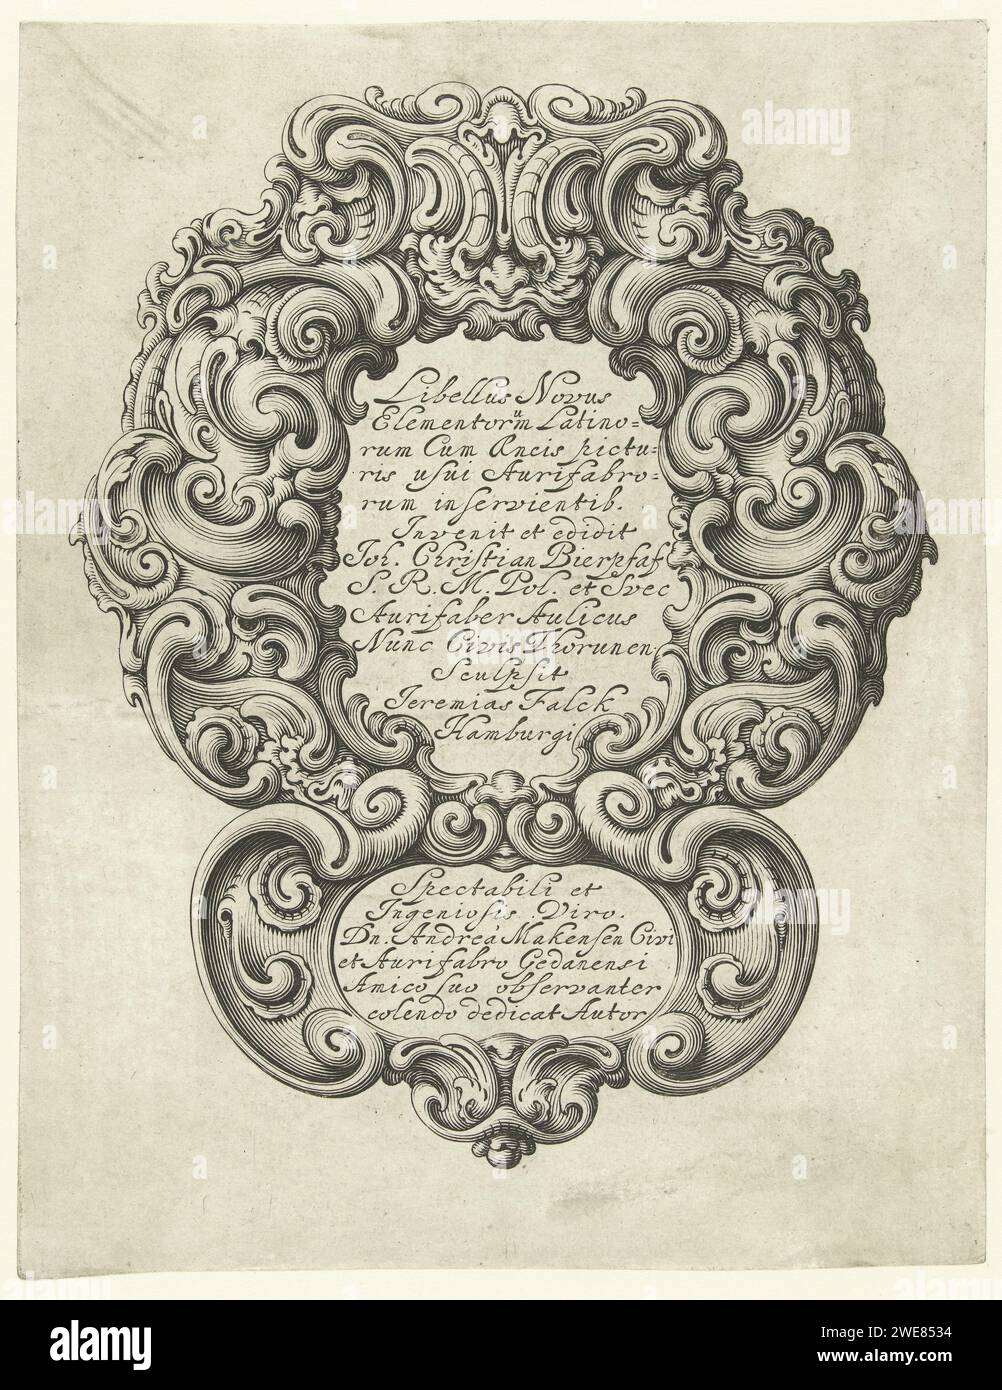 Libellus Novus
Elementorũm Latino=
rum Cum Aneis pictu=
ris usui Aurifabro=
rum inservientib.
Invenit et edidit
Joh. Christian Bierpfaf
S. R. M. Pol. et Svec
Aurifaber Aulicus
Nunc Civis Thorunen
Sculpsit
Jeremias Falck
Hamburgi
Spectabili et
Ingeniosis. Viro.
Dn. Andreá Makensen Civi
et Aurifabro Gedanensi
Amico suo observanter
colendo dedicat Autor
alamy
Image ID: 2WE8534
www.alamy.com